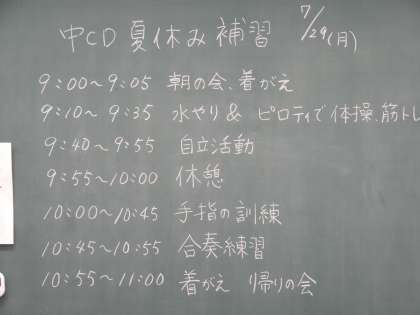 中CD 夏休み 補習 7/29(月)
9:00~9:05 朝の会、着がえ
9:10~9:35 水やり & ピロティで体操、筋トレ
9:40~9:55 自立活動
9:55~10:00 休憩
10:00~10:45 手指の訓練
10:45~10:55 合奏練習
10:55~11:00 着がえ 帰りの会